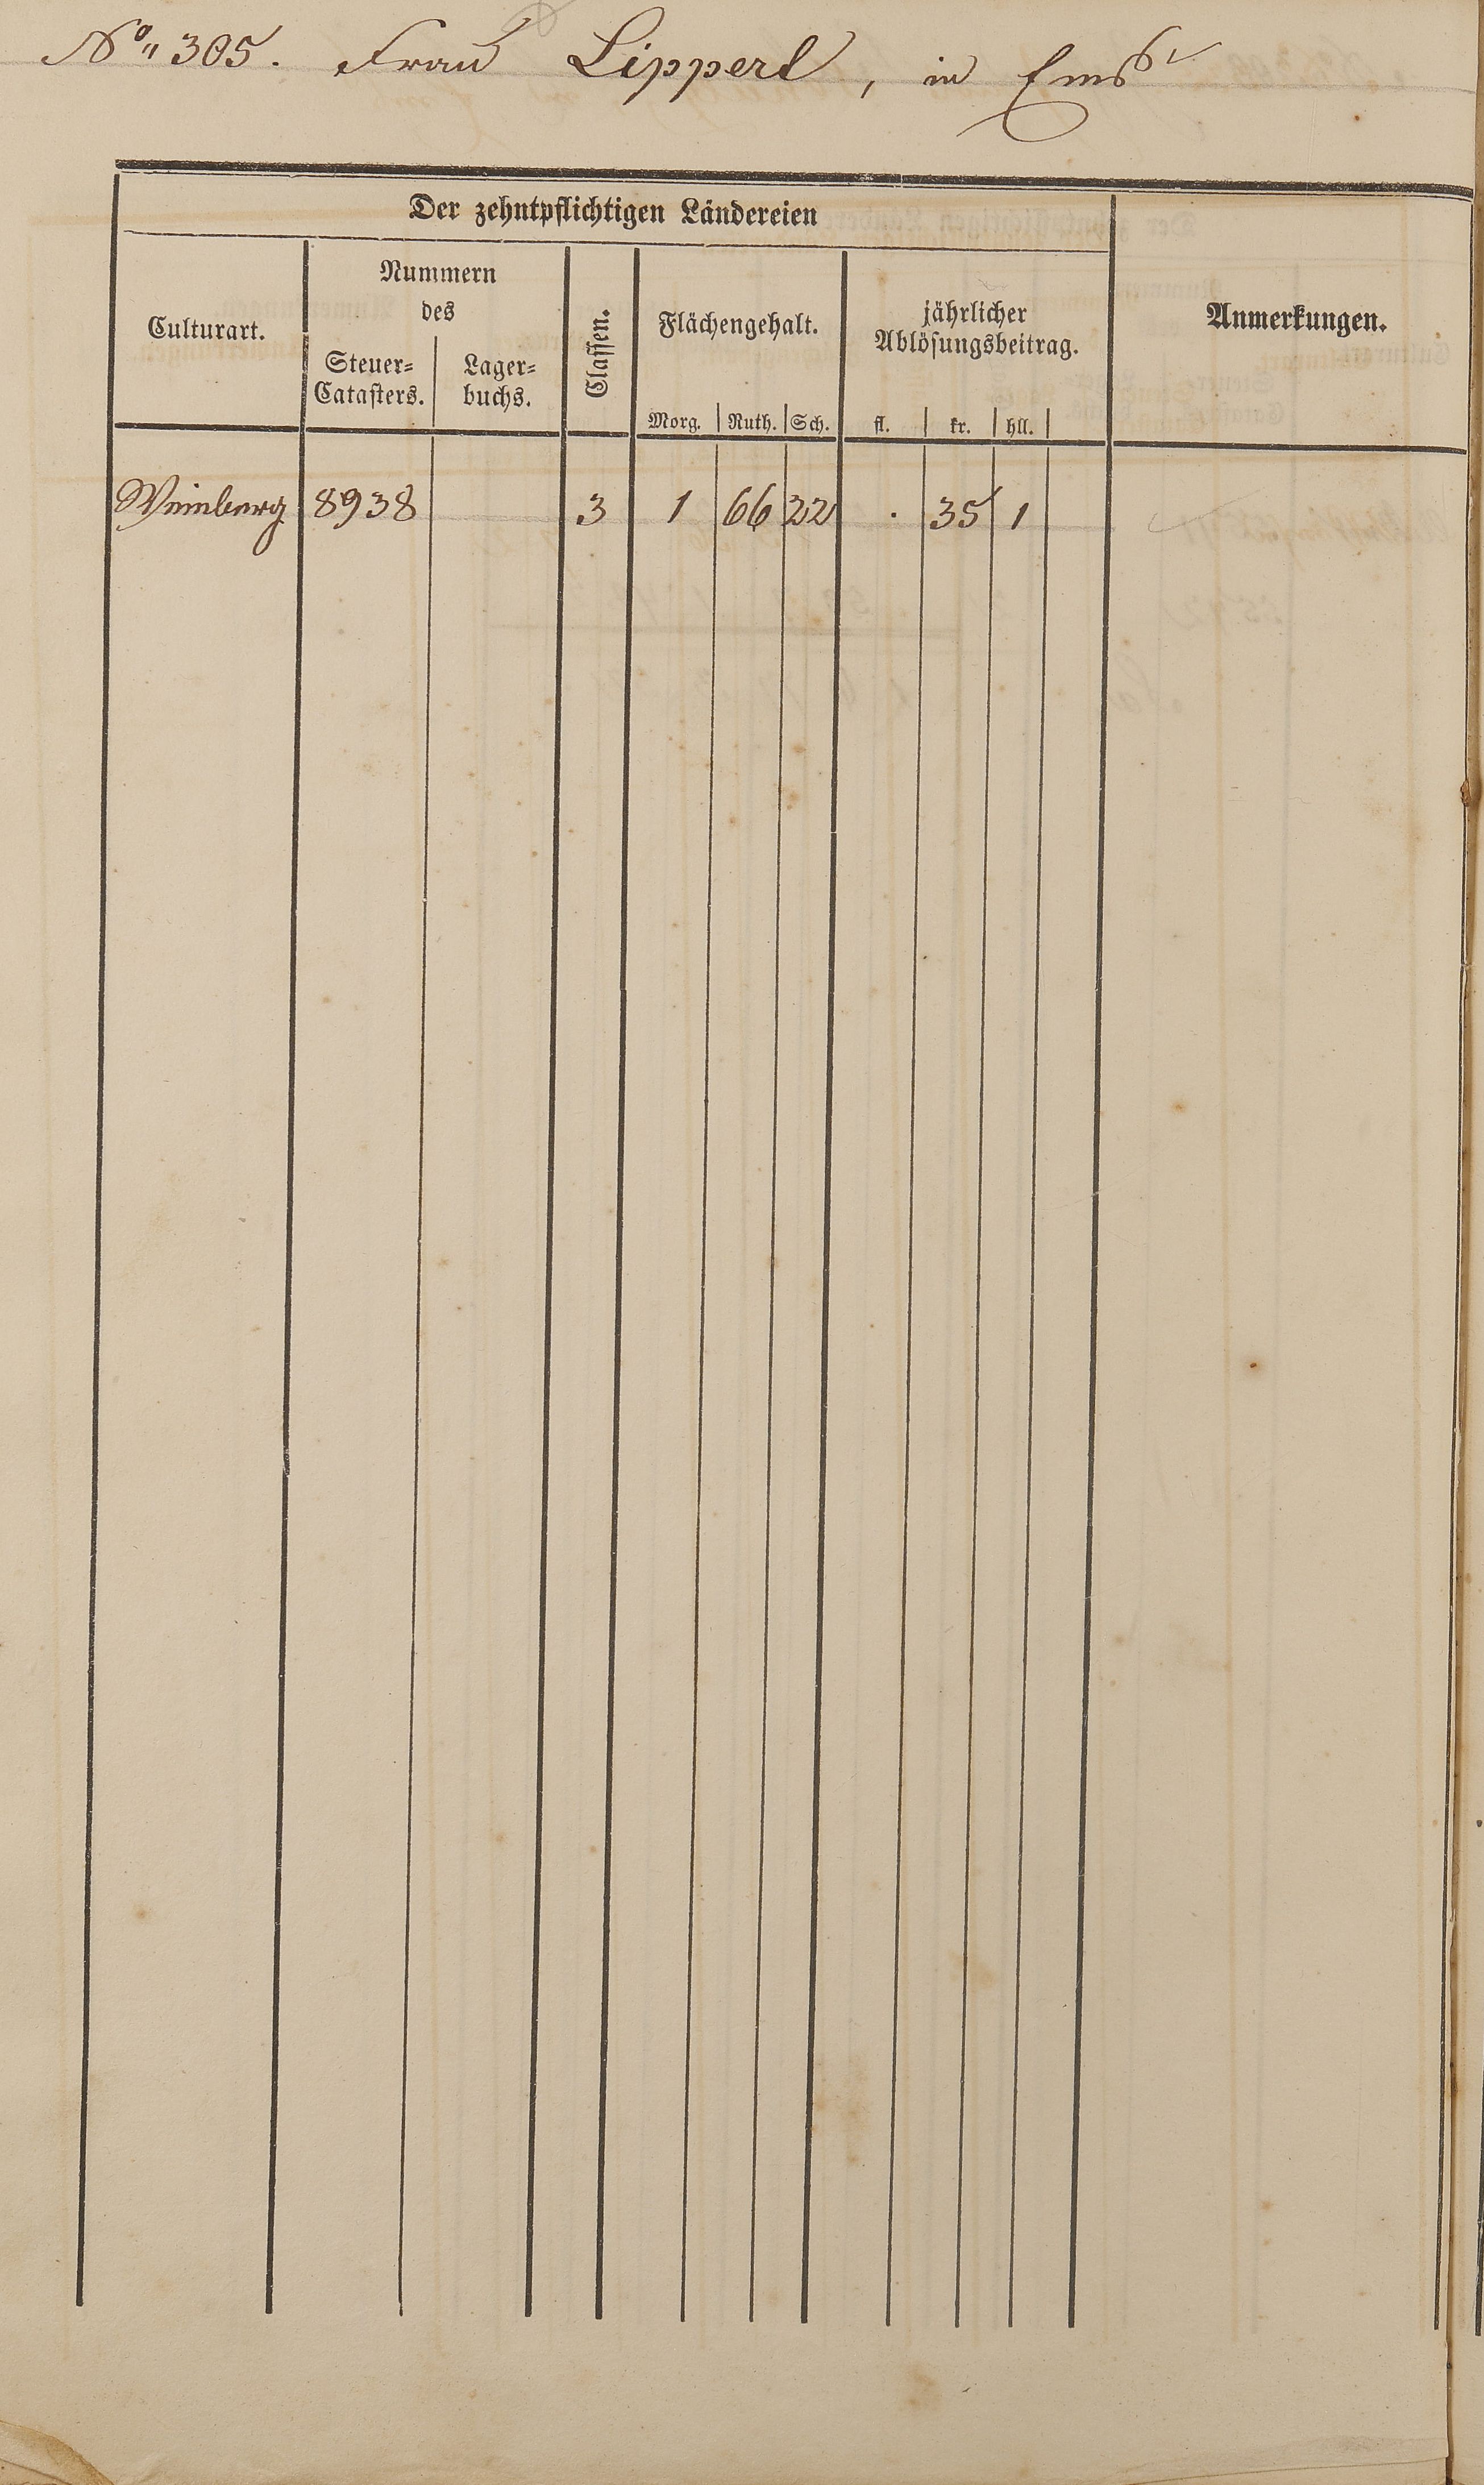 No 305. Frau Lippert, in Ems
Der zehntpflichtigen Ländereien
Culturart.
Nummern
des
Steuer=
Catasters.
Lager=
buchs.
Classen.
Flächengehalt.
Morg. Ruth. Sch.
jährlicher
Ablösungsbeitrag.
fl. kr. hll.
Anmerkungen.
Weinberg 8938 3 1 66 22 . 35 1